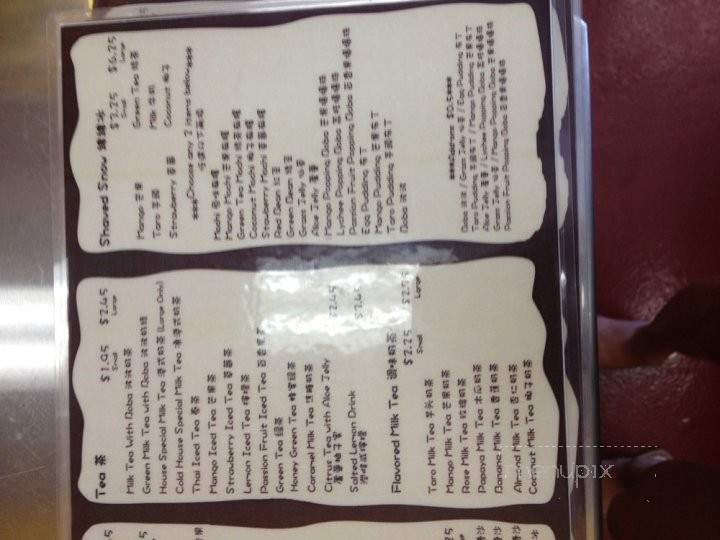 Tea 茶
$1.95 $2.45
Small Large
Milk Tea With Boba 波波奶茶
Green Milk Tea with Boba 波波奶绿
House Special Milk Tea 港式奶茶 (Large Only)
Cold House Special Milk Tea 凍港式奶茶
Thai Iced Tea 泰茶
Mango Iced Tea 芒果茶
Strawberry Iced Tea 草莓茶
Lemon Iced Tea 檸檬茶
Passion Fruit Iced Tea 百香果茶
Green Tea 綠茶
Honey Green Tea 蜂蜜綠茶
Caramel Milk Tea 焦糖奶茶
Citrus Tea with Aloe Jelly $2.45
蘆薈柚子蜜
Salted Lemon Drink $2.45
Flavored Milk Tea 調味奶茶
$2.25 $2.75
Small Large
Taro Milk Tea 芋头奶茶
Mango Milk Tea 芒果奶茶
Rose Milk Tea 玫瑰奶茶
Papaya Milk Tea 木瓜奶茶
Banana Milk Tea 香蕉奶茶
Almond Milk Tea 杏仁奶茶
Coconut Milk Tea 椰子奶茶
Shaved Snow
$3.25 $6.25
Small Large
Mango 芒果 Green Tea 綠茶
Taro 芋頭 Milk 牛奶
Strawberry 草莓 Coconut 椰子
***Choose any 2 items below***
Mochi 原味麻糬
Mango Mochi 芒果麻糬
Green Tea Mochi 綠茶麻糬
Coconut Mochi 椰子麻糬
Strawberry Mochi 草莓麻糬
Red Bean 紅豆
Green Bean 綠豆
Grass Jelly 仙草
Aloe Jelly 蘆薈
Mango Popping Boba 芒果爆爆珠
Lychee Popping Boba 荔枝爆爆珠
Passion Fruit Popping Boba 百香果爆爆珠
Egg Pudding 布丁
Mango Pudding 芒果布丁
Taro Pudding 芋頭布丁
Boba 波波
***Addtions $0.5***
Boba 波波 / Grass Jelly 仙草 / Egg Pudding 布丁
Taro Pudding 芋頭布丁 / Mango Pudding 芒果布丁
Aloe Jelly 蘆薈 / Lychee Popping Boba 荔枝爆爆珠
Grass Jelly 仙草 / Mango Popping Boba 芒果爆爆珠
Passion Fruit Popping Boba 百香果爆爆珠
menupix